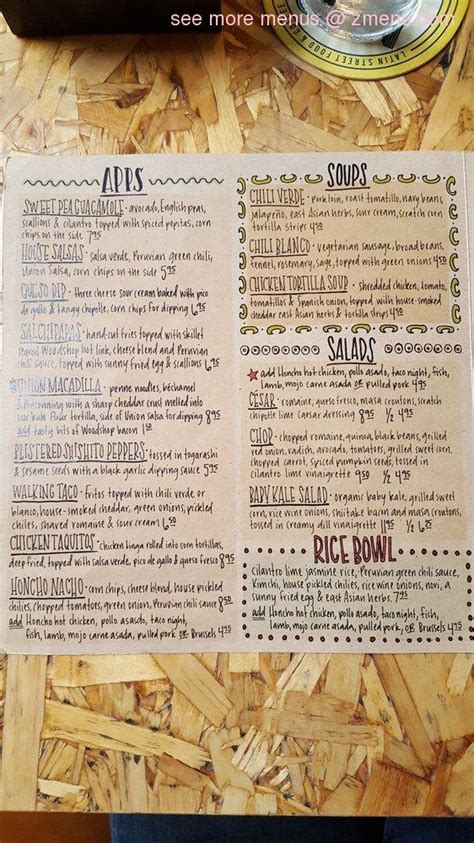 see more menus @ zmenu.com
LATIN STREET FOOD &
APPS
SWEET PEA GUACAMOLE - avocado, English peas,
scallions & cilantro topped with spiced pepitas, corn
chips on the side 7.95
HOUSE SALSAS - salsa verde, Peruvian green chili,
Union Salsa, corn chips on the side 5.95
QUESO DIP - three cheese sour cream baked with pico
de gallo & tangy chipotle, corn chips for dipping 6.95
SALCHIPAPAS - hand-cut fries topped with skillet
seared Woodshop hot link, cheese blend and Peruvian
chili sauce, topped with sunny fried egg & scallions 6.95
UNION MACADILLA - penne noodles, béchamel
& seasoning with a sharp cheddar crust melted into
our kale flour tortilla, side of Union salsa for dipping 8.95
add tasty bits of Woodshop bacon 1.50
BLISTERED SHISHITO PEPPERS - tossed in togarashi
& sesame seeds with a black garlic dipping sauce 5.95
WALKING TACO - Fritos topped with chili verde or
blanco, house-smoked cheddar, green onions, pickled
chiles, shaved romaine & sour cream 6.50
CHICKEN TAQUITOS - chicken tinga rolled into corn tortillas,
deep fried, topped with salsa verde, pico de gallo & queso fresco 8.95
HONCHO NACHO - corn chips, cheese blend, house pickled
chilies, chopped tomatoes, green onion, Peruvian chili sauce 8.50
add Honcho hot chicken, pollo asado, taco night,
fish, lamb, mojo carne asada, pulled pork, or Brussels 4.95
SOUPS
CHILI VERDE - pork loin, roast tomatillo, navy beans,
jalapeño, east Asian herbs, sour cream, scratch corn
tortilla strips 4.50
CHILI BLANCO - vegetarian sausage, broad beans,
fennel, rosemary, sage, topped with green onions 4.50
CHICKEN TORTILLA SOUP - shredded chicken, tomato,
tomatillos & Spanish onion, topped with house-smoked
cheddar east Asian herbs & tortilla strips 4.50
SALADS
add Honcho hot chicken, pollo asado, taco night, fish,
lamb, mojo carne asada or pulled pork 4.95
CESAR - romaine, queso fresco, masa croutons, scratch
chipotle lime Caesar dressing 8.95 1/2 4.95
CHOP - chopped romaine, quinoa, black beans, grilled
red onion, radish, avocado, tomatoes, grilled sweet corn,
chopped carrot, spiced pumpkin seeds, tossed in
cilantro lime vinaigrette 9.50 1/2 4.95
BABY KALE SALAD - organic baby kale, grilled sweet
corn, rice wine onions, shiitake bacon and masa croutons,
tossed in creamy dill vinaigrette 11.95 1/2 6.25
RICE BOWL
cilantro lime jasmine rice, Peruvian green chili sauce,
Kimchi, house pickled chilies, rice wine onions, nori, a
sunny fried egg & east Asian herbs. 7.95
add Honcho hot chicken, pollo asado, taco night, fish,
lamb, mojo carne asada, pulled pork, or Brussels 4.95